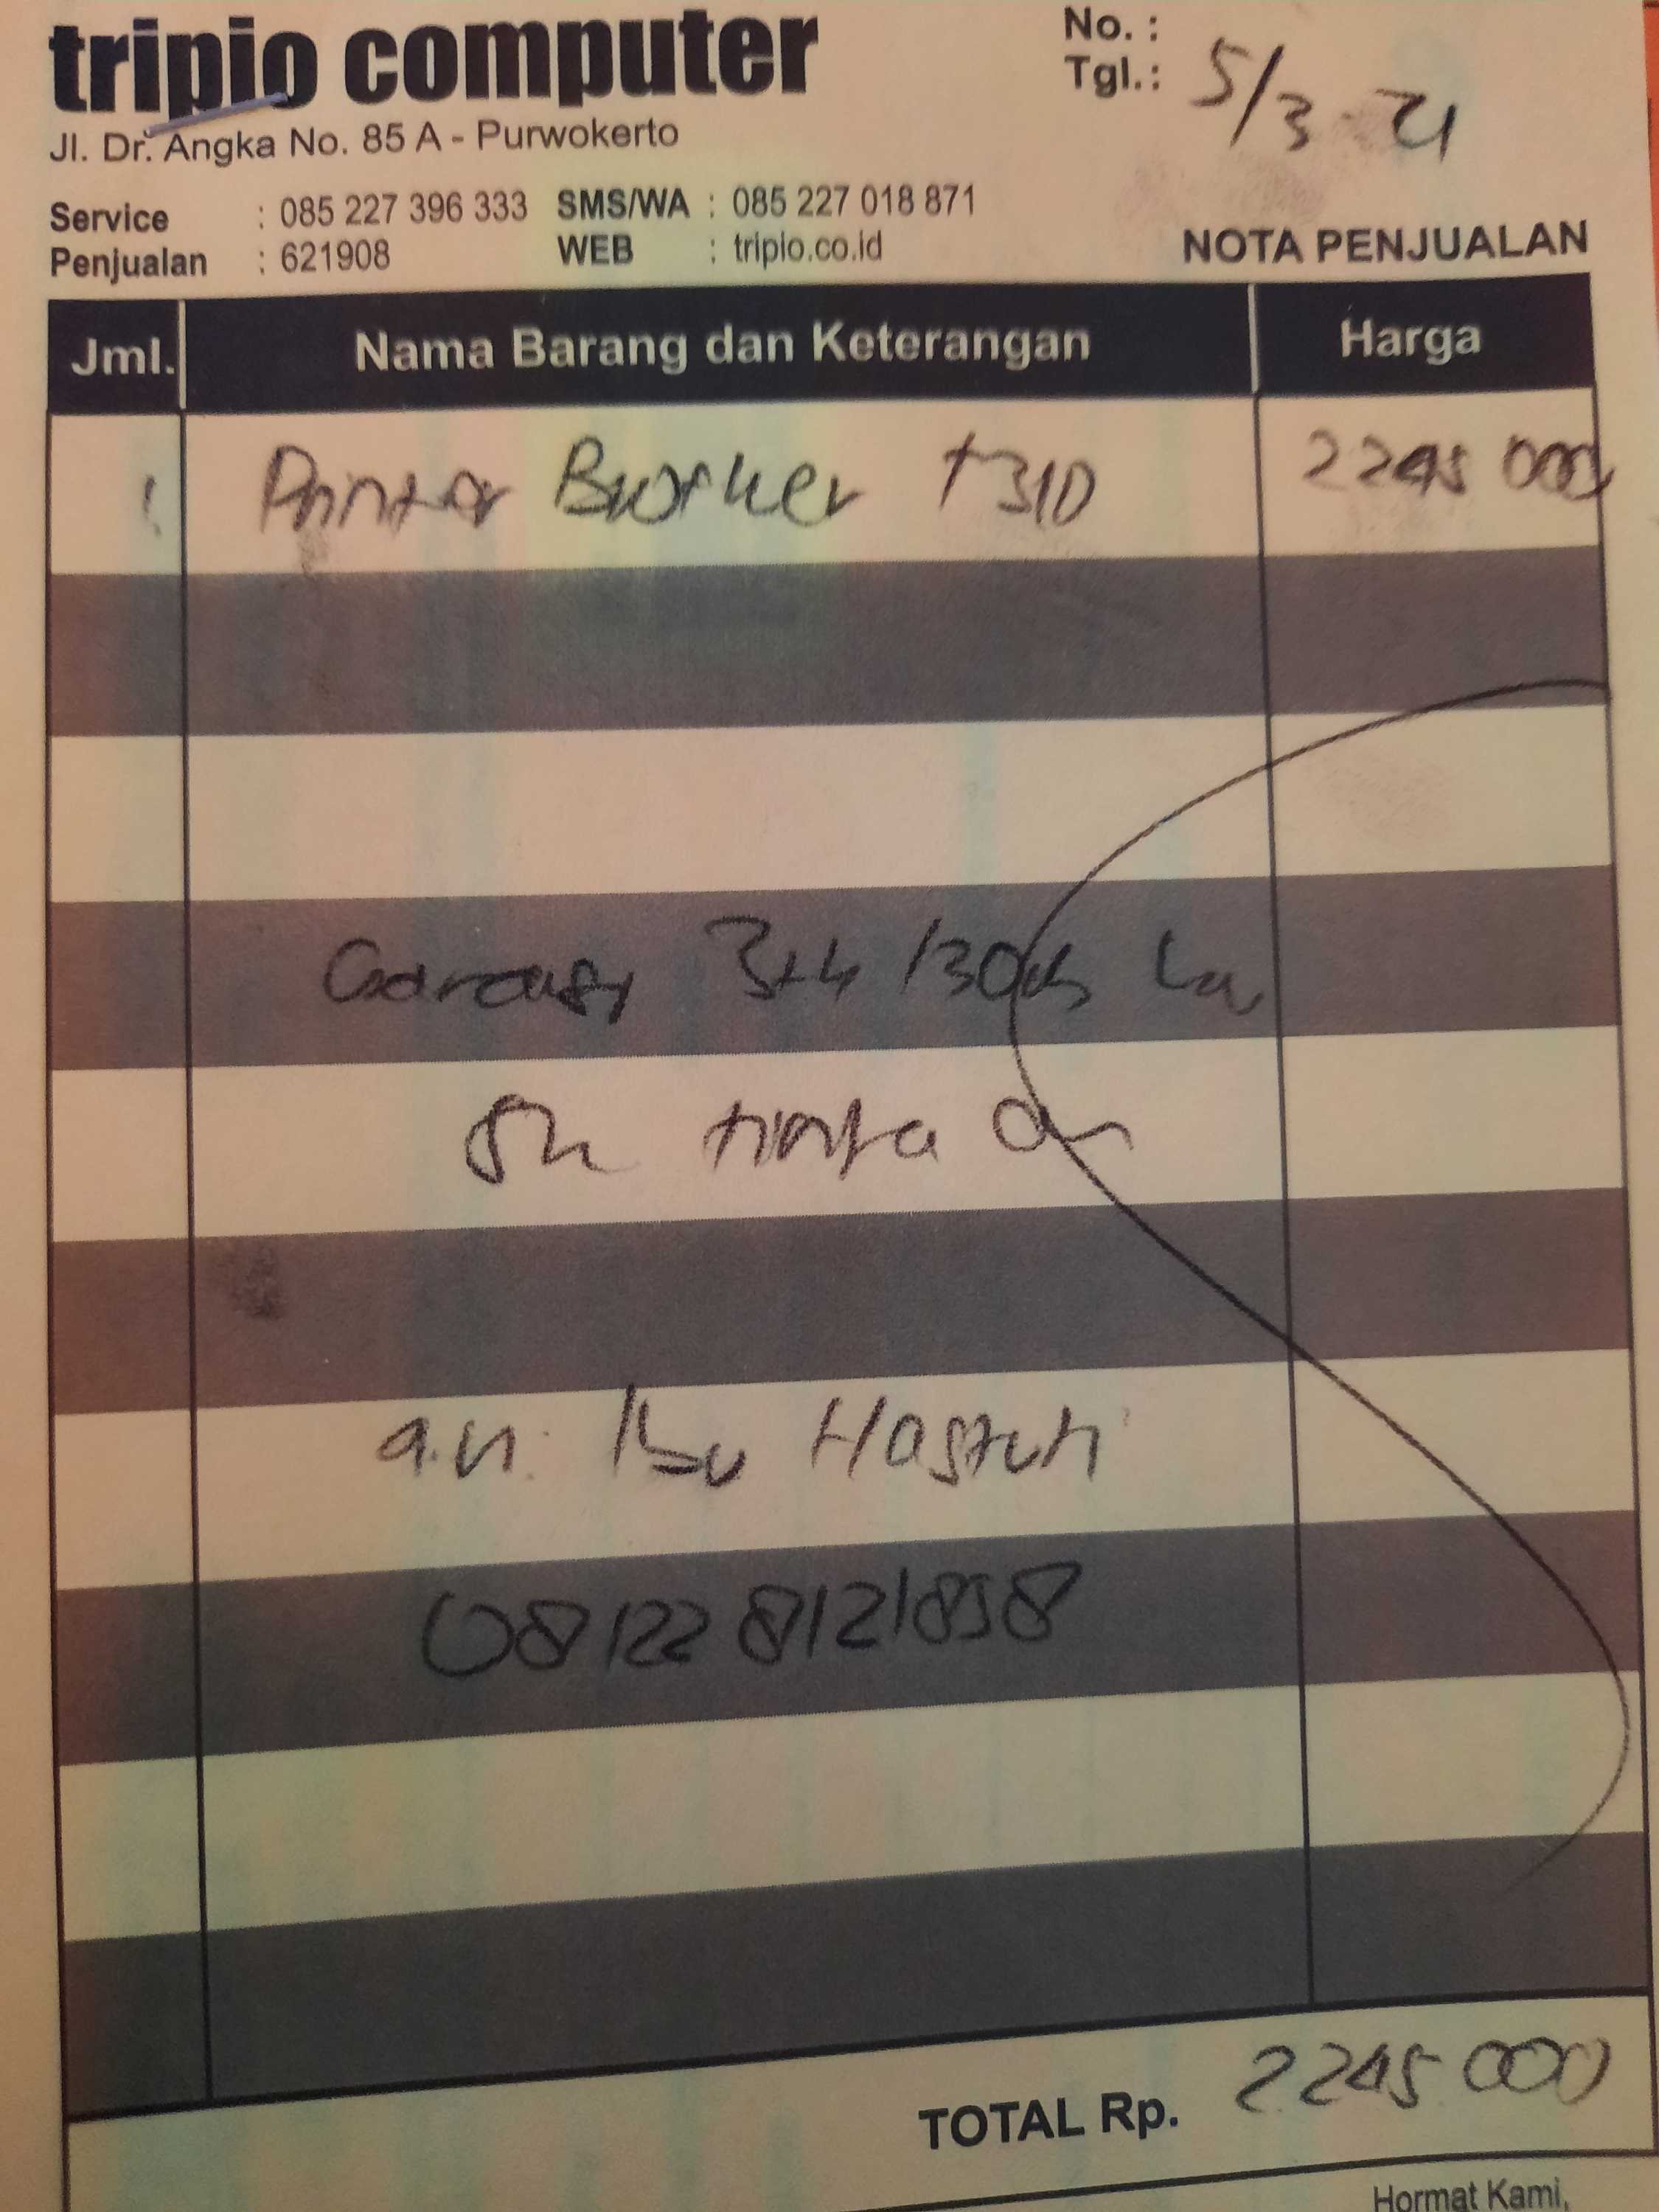 tripio computer
No. :
Tgl. : 5/3-21
Jl. Dr. Angka No. 85 A - Purwokerto
Service : 085 227 396 333 SMS/WA : 085 227 018 871
Penjualan : 621908 WEB : tripio.co.id
NOTA PENJUALAN
Jml. Nama Barang dan Keterangan Harga
1 Printer Brother T310 2245 000
Garansi 3th /30rb
tinta
a.n. Ibu Hastuti
08122 8121858
TOTAL Rp. 2.245.000
Hormat Kami,